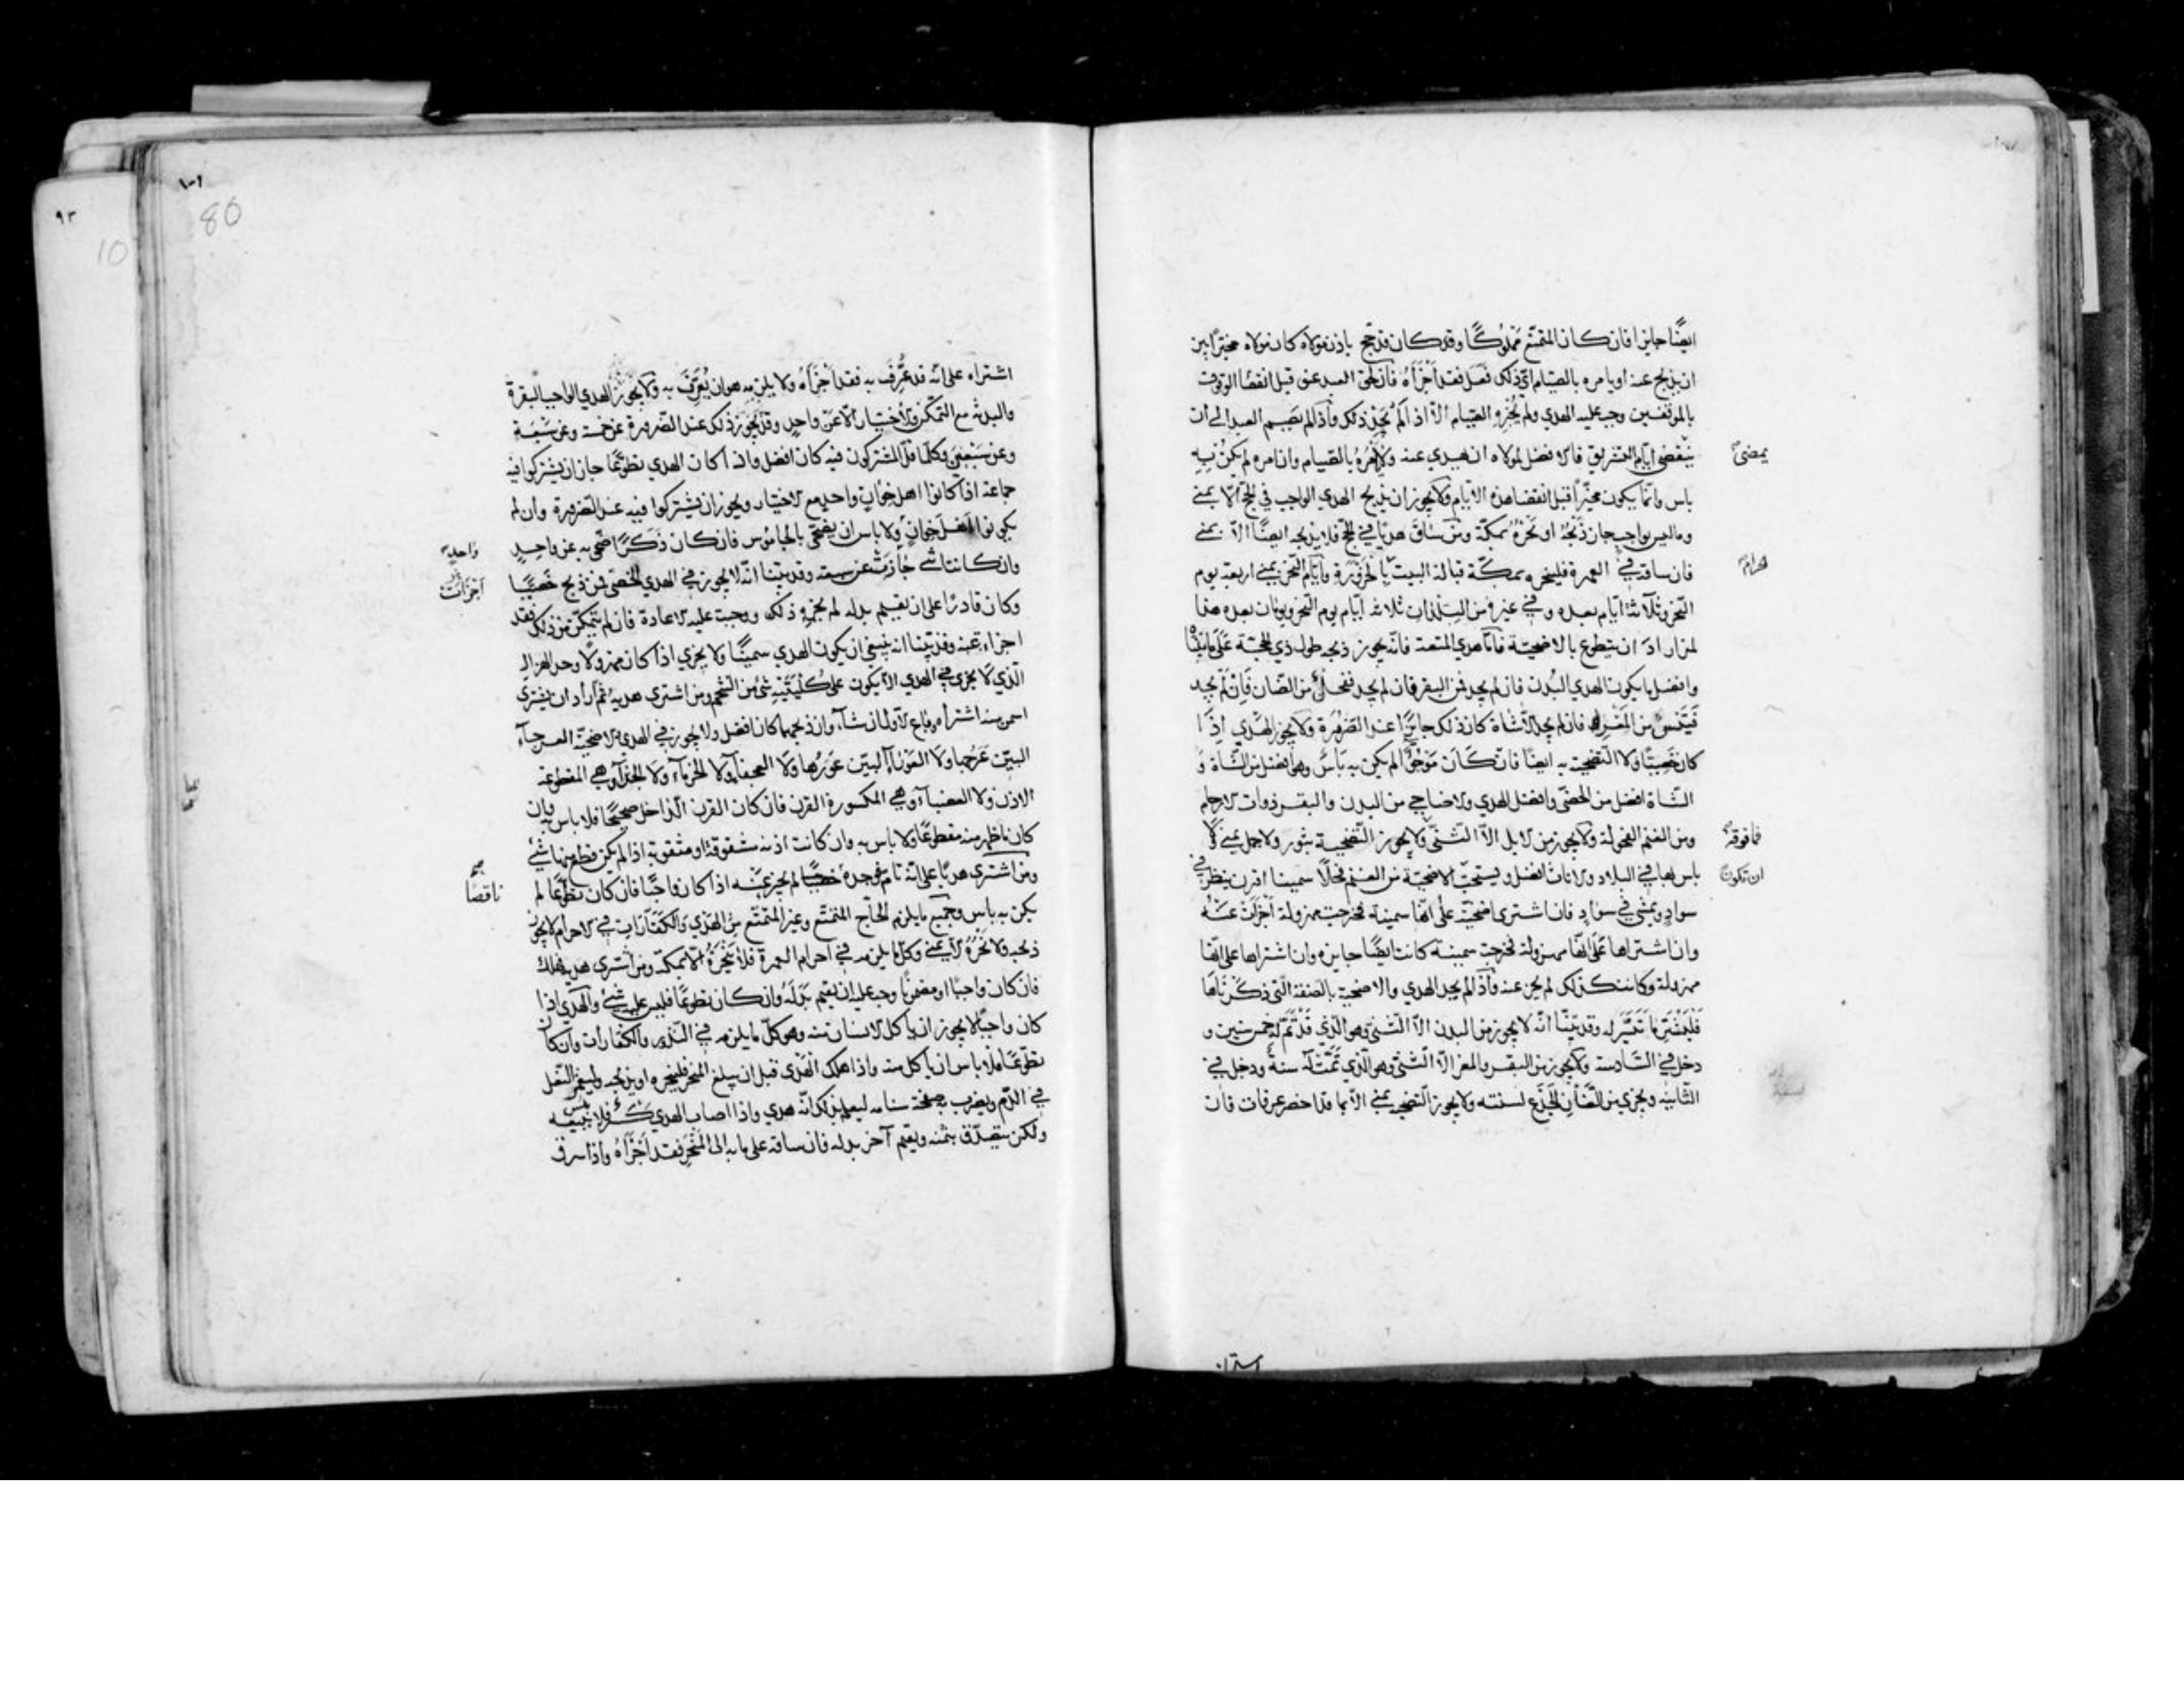 ايضًا جايزا فان كان المتمتع مملوكًا وقد كان قد حج باذن مولاه كان مولاه مخيّرًا بين
ان يذبح عنه او يامره بالصيام ايّ ذلك فعل فقد اَجْزَاَهُ فان لحق العبد عتق قبل انقضا الوقوف
بالموقفين وجب عليه الهدي ولم يُجْزِهِ الصيام الّا اذا لم يَجِدْ ذلك واذا لم يصم العبد الى ان
ينقضي ايام التشريق فالافضل لمولاه ان يهدي عنه ولا يَاْمُرُهُ بالصيام وان امره لم يكن به
يمضى
باس وانما يكون مخيّرًا قبل انقضا هذه الايام ولا يجوز ان يذبح الهدي الواجب في الحج الّا بمنى
وما ليس بواجب جاز ذَبْحُهُ او نَحْرُهُ بمكّة ومن ساق هديًا في الحجّ فلا يذبحه ايضًا الّا بمنى
فان ساقه في العمرة فلينحره بمكّة قبالة البيت بالحَزْوَرَةِ وايّام النحر بمنى اربعة يوم
النحر وثلاثة ايام بعده وفي غيره من البلدان ثلاثة ايّام يوم النحر ويومان بعده هذا
لمن اراد ان يتطوع بالاضحيّة فامّا هدي المتعة فانّه يجوز ذبحه طول ذي الحجّة على ما بيّنّا
وافضل ما يكون الهدي البُدن فان لم يجد فمن البقر فان لم يجد ففحلًا من الضان فان لم يجد
فتَيْسٌ من المعزا فان لم يجد الّا شاة كان ذلك جائزًا عند الضرورة ولا يجوز الهدي اذا
كان خصيّا ولا التضحية به ايضًا فان كان مَوْجُوًّا لم يكن به باسٌ وهو افضل من الشاة و
الشاة افضل من الخصيّ وافضل الهدي والاضاحي من البدن والبقر ذوات الارحام
ومن الغنم الفحولة ولا يجوز من الابل الّا الثنيّ ولا يجوز التضحية بثور ولا جمل بمنى ولا
فما فوقه
باس بها في البلاد والاناث افضل ويستحبّ الاضحيّة من الغنم فحلًا سمينا اقرن ينظر في
ان تكون
سوادٍ ويمشي في سوادٍ فان اشترى اضحيّة على انّها سمينة فخرجت مهزولة اَجْزَاَتْ عنه
وان اشتراها على انّها مهزولة فخرجت سمينة كانت ايضًا جايزه وان اشتراها على انّها
مهزولة وكانت كذلك لم يجز عنه واذا لم يجد الهدي والاضحية بالصفة التي ذكرناها
فليشترِ ما تيسّر له وقد بيّنّا انّه لا يجوز من البدن الّا الثنيّ وهو الذي قد تمّ له خمس سنين و
دخل في السّادسة ولا يجوز من البقر والمعز الّا الثنيّ وهو الذي تمّت له سنة ودخل في
الثانية ويجزي من الضّأن الجَذَع لسنته ولا يجوز التضحية بمنى الّا بما قد احضر عرفات فان
اشتراه
اشتراه على انّه قد عُرِّفَ به فقد اجزاهُ ولا يلزمه هو ان يُعَرِّفَ به ولا يجوز في الهدي الواجب البقرة
والبدنه مع التمكّن والاختيار الّا عن واحدٍ وقد يجوز ذلك عند الضرورة عن خمسة وعن سبعة
وعن سبعين وكلّما قلّ المشتركون فيه كان افضل واذا كان الهدي تطوعًا جاز ان يشتركوا فيه
جماعة اذا كانوا اهل خوانٍ واحد مع الاختيار ويجوز ان يشتركوا فيه عند الضرورة وان لم
يكونوا اهل خوانٍ ولا باس ان يضحّى بالجاموس فان كان ذكرًا ضحّى به عن واحدٍ
واحدٍ
وان كانت انثى جازت عن سبعة وقد بيّنا انّه لا يجوز في الهدي الخصيّ فمن ذبح خصيّا
اَجْزَاَت
وكان قادرًا على ان يقيم بدله لم يجزهِ ذلك ووجبت عليه الاعادة فان لم يتمكّن من ذلك فقد
اجزاء عنه وقد بيّنا انه ينبغي ان يكون الهدي سمينًا ولا يجزي اذا كان مهزولًا وحدّ الهزال
الّذي لا يجزى في الهدي الّا يكون على كُلْيَتَيْهِ شيءٌ من الشحم ومن اشترى هديه ثم اراد ان يشتري
اسمن منه اشتراه وباع الاول ان شاء وان ذبحهما كان افضل ولا يجوز في الهدي والاضحيّة العرجآء
البيّن عرجها ولا العوراء البيّن عورها ولا العجفآء ولا الخرماء ولا الجذّاء وهي المقطوعة
الاذن ولا العضباء وهي المكسورة القرن فان كان القرن الداخل صحيحًا فلا باس به وان
كان ما ظهر منه مقطوعًا ولا باس به وان كانت اذنه مشقوقة او مثقوبة اذا لم يكن قطع منها شيء
ومن اشترى هديًا على انّه تامّ فوجدهُ لم يجز عنه اذا كان واجبًا فان كان تطوّعًا لم
ناقصًا
يكن به باس وجميع ما يلزم الحاج المتمتّع وغير المتمتّع من الهدي والكفّارات في الاحرام لا يجوز
ذبحه ولا نحره الّا بمنى وكلّ ما يلزمه في احرام العمرة فلا ينحره الّا بمكة ومن اشترى هديه فهلك
فان كان واجبًا او مضمونًا وجب عليه ان يقيم بدله وان كان تطوعًا فليس عليه شيء والهدي اذا
كان واجبًا لا يجوز ان ياكل الانسان منه وهو كلّ ما يلزمه في النذور والكفّارات وان كان
تطوّعًا فلا باس ان ياكل منه واذا هلك الهدي قبل ان يبلغ المنحر فلينحره او يذبحه وليغمز النعل
في الدّم ويضرب به صفحة سنامه ليعلم بذلك انّه هدي واذا اصاب الهدي كسرٌ فلا باس ببيعه
ولكن يتصدّق بثمنه ويقيم آخر بدله فان ساقه على ما به الى المنحر فقد اجزاهُ واذا سرق
١٠١
80
٩٣
10